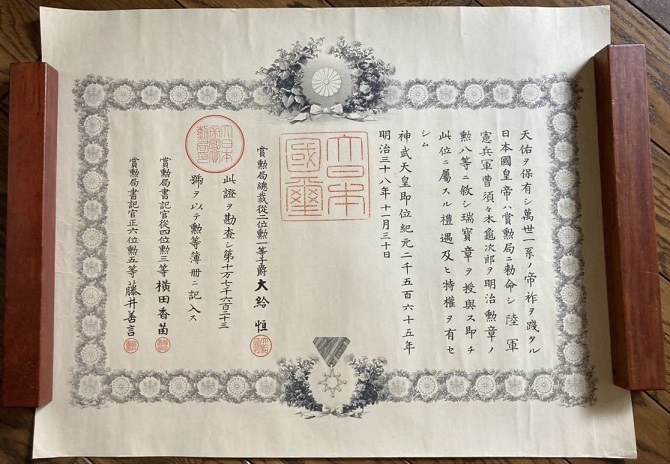 天佑ヲ保有シ萬世一系ノ帝祚ヲ踐タル
日本國皇帝ハ賞勲局ニ勅命シ陸軍
憲兵軍曹須々木龜次郎ヲ明治勲章ノ
勲八等ニ敘シ瑞寶章ヲ授與ス即チ
此位ニ屬スル禮遇及ヒ特權ヲ有セ
シム
神武天皇即位紀元二千五百六十五年
明治三十八年十一月三十日
大日本
國璽
賞勲局總裁從二位勲一等子爵大給恒
此證ヲ勘査シ第十万七千六百二十三
號ヲ以テ勲等簿册ニ記入ス
賞勲局書記官從四位勲三等横田香苗
賞勲局書記官正六位勲五等藤井善言